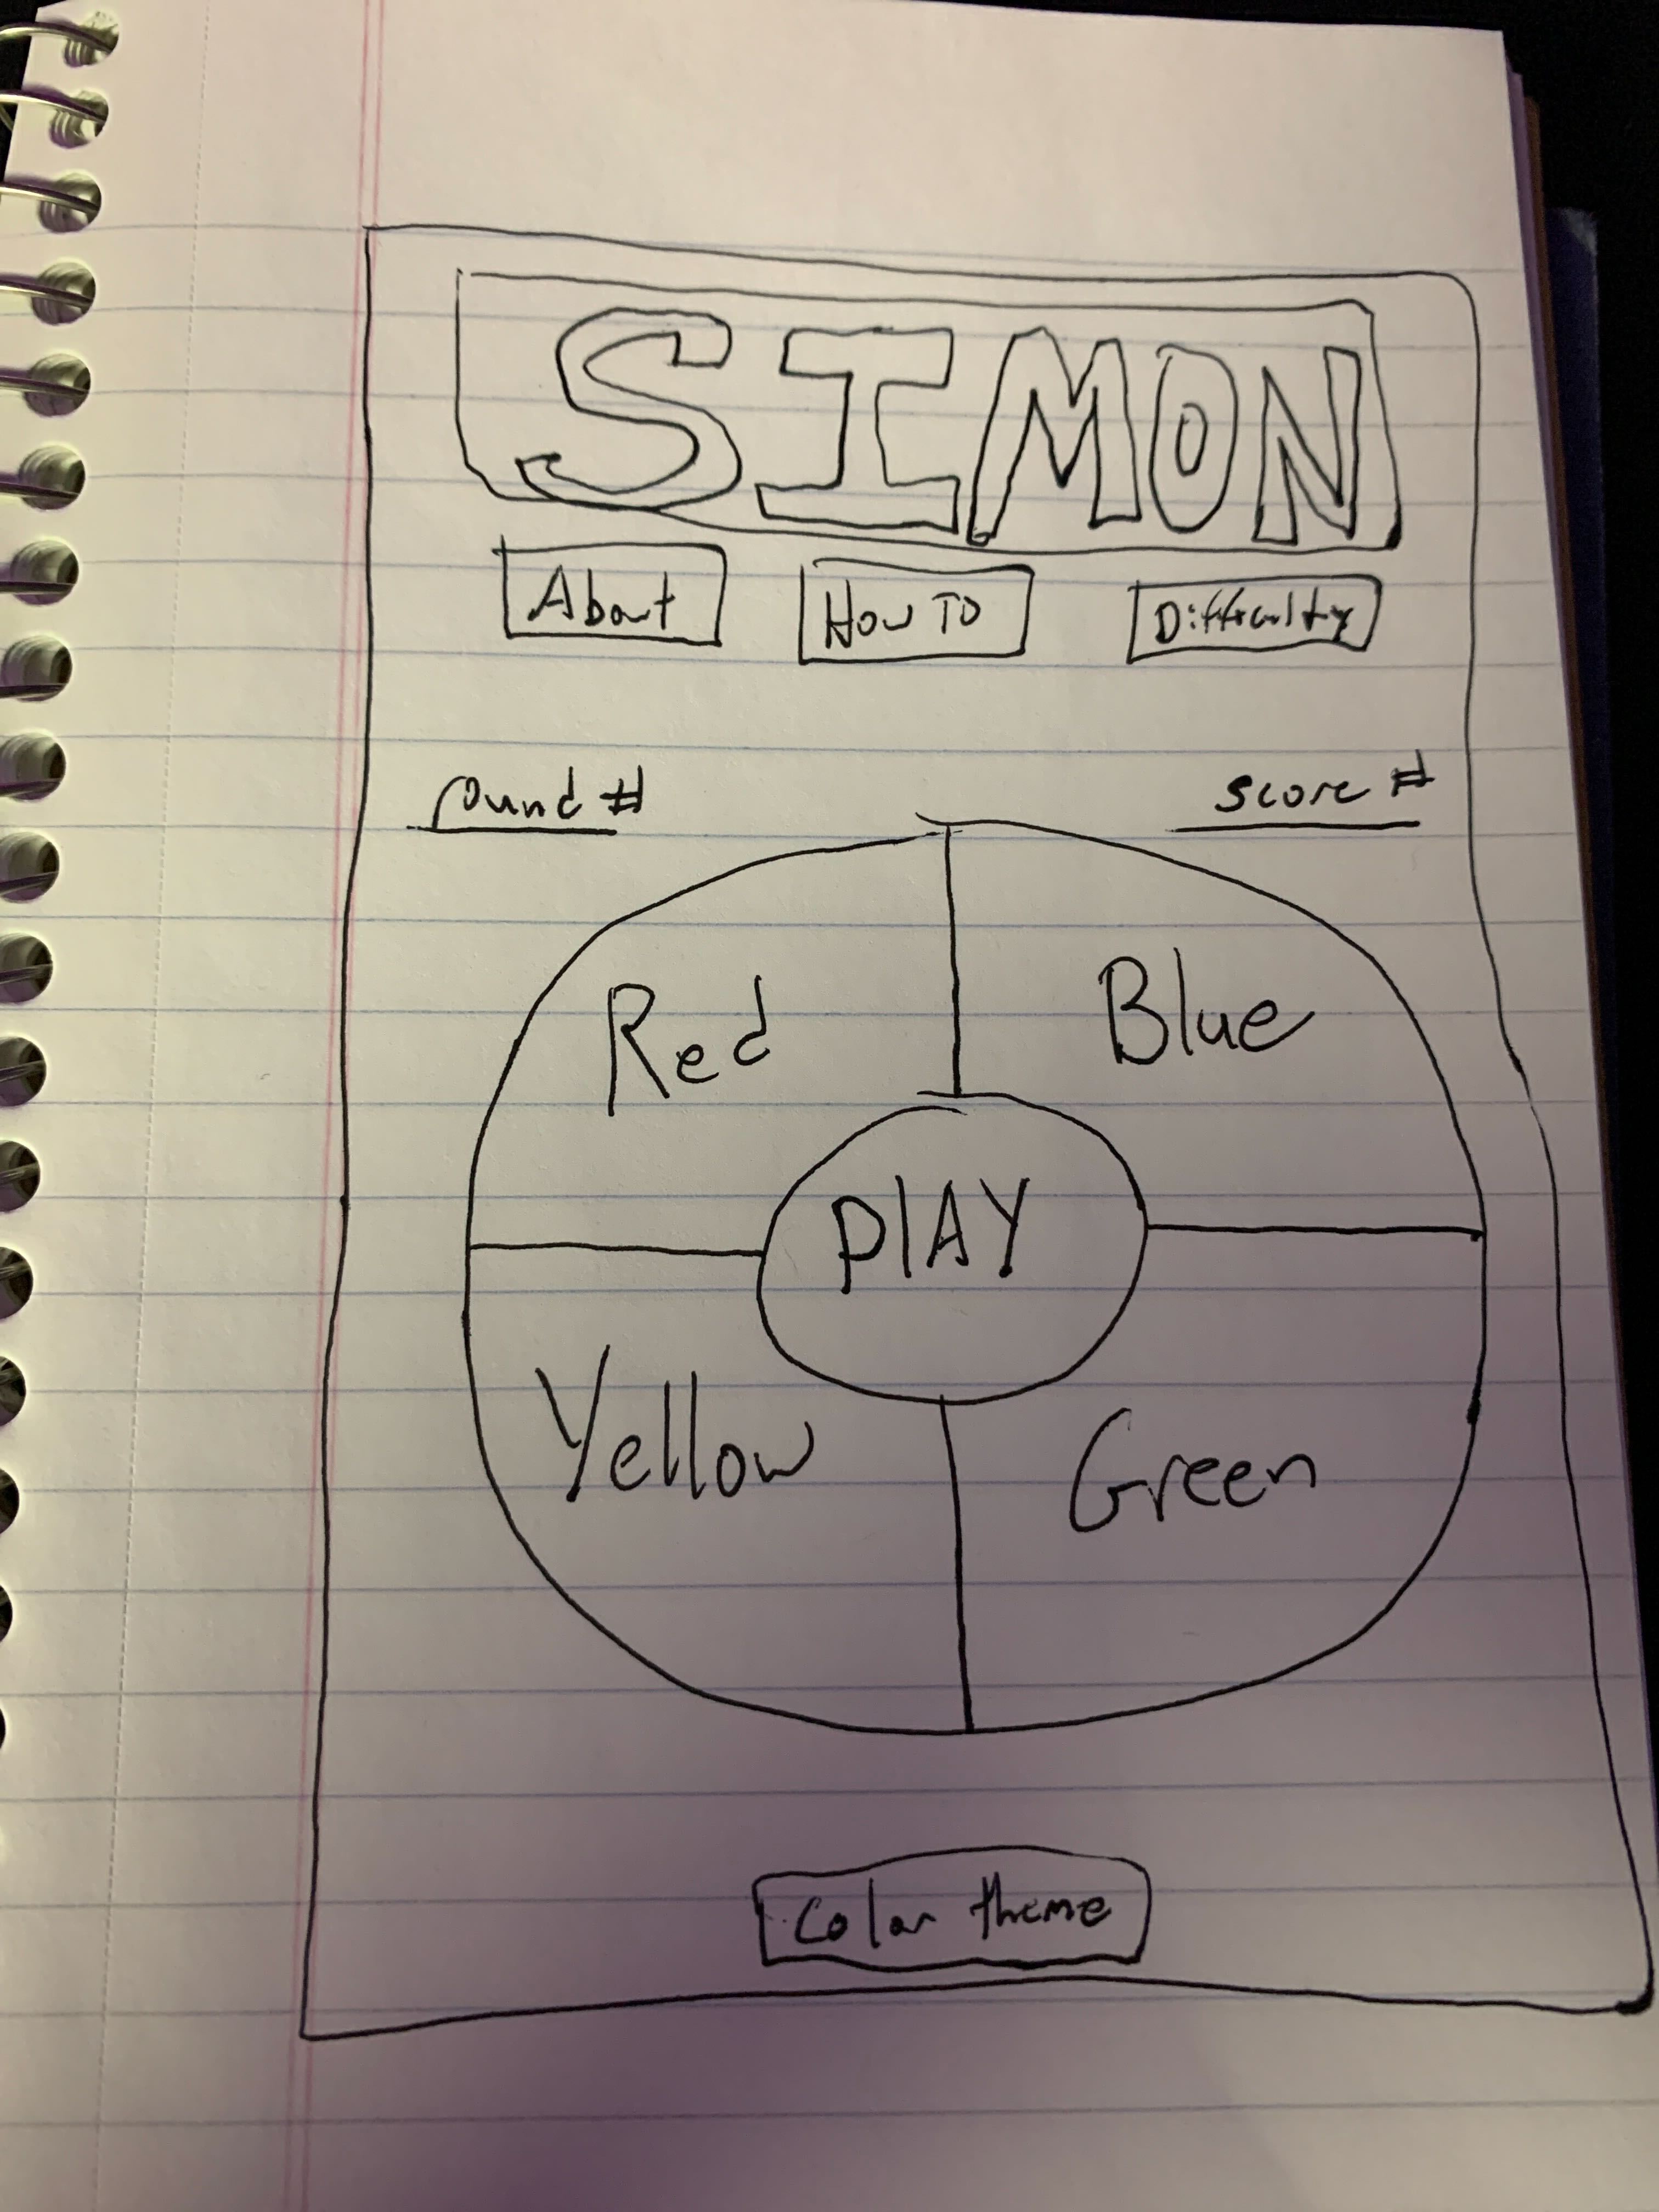 SIMON
About How To Difficulty
round # score #
Red Blue
PlAY
Yellow Green
Color theme